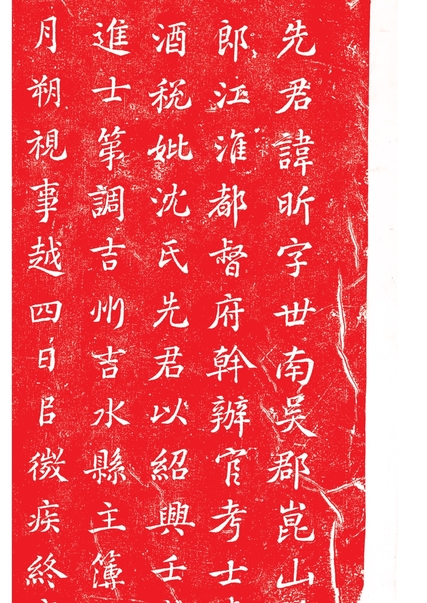 先君諱昕字世南吳郡崑山
郎江淮都督府幹辦官考士
酒稅妣沈氏先君以紹興壬
進士第調吉州吉水縣主簿
月朔視事越四日㠯微疾終